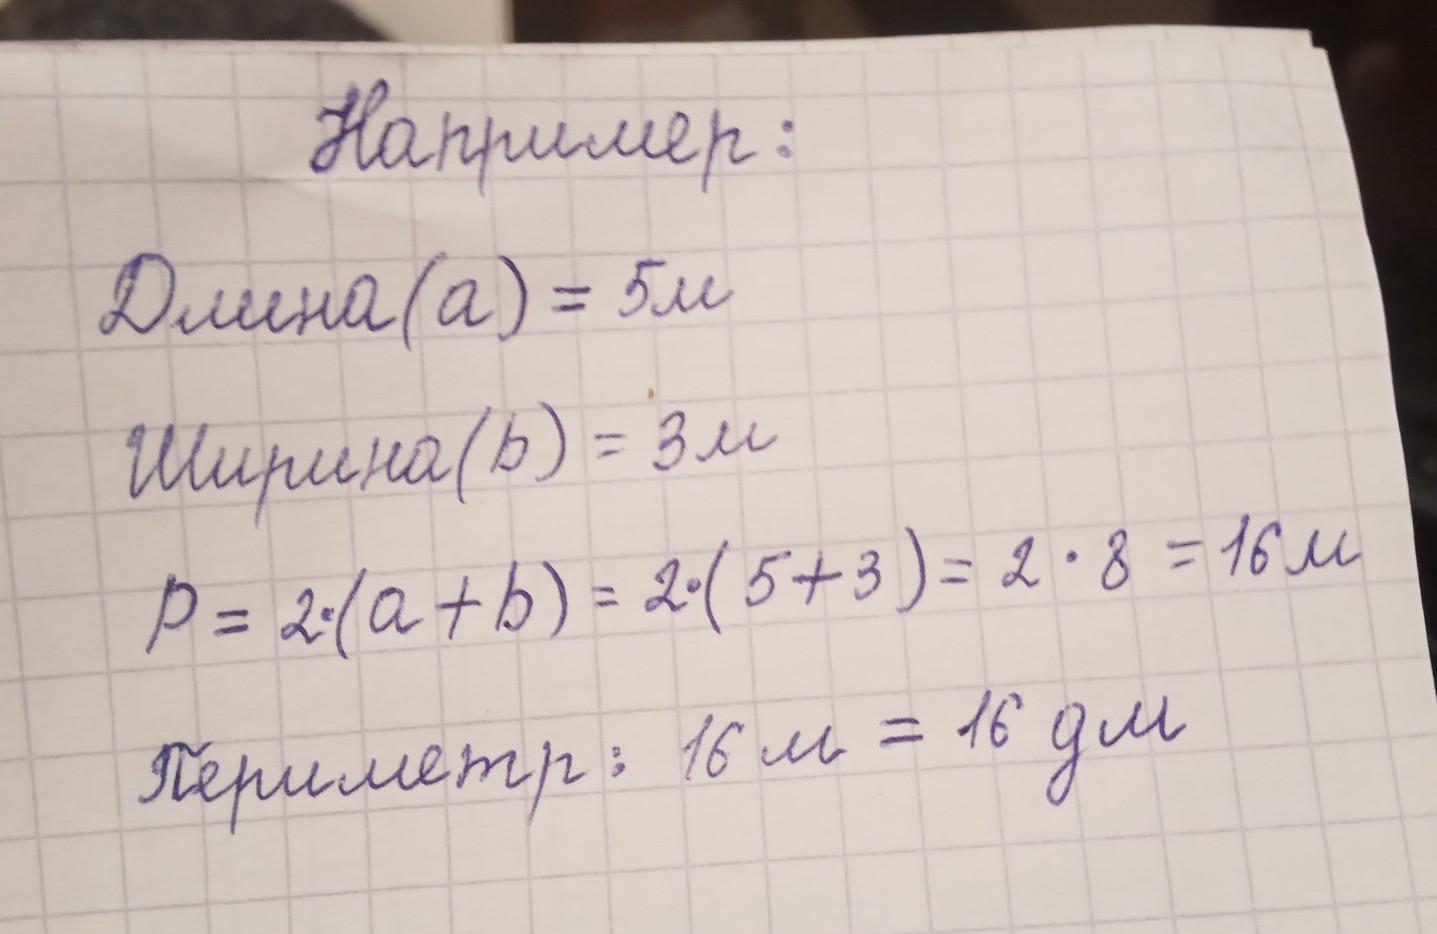 Например:
Длина(a) = 5м
Ширина(b) = 3м
P = 2·(a+b) = 2·(5+3) = 2·8 = 16м
Периметр: 16м = 16 дм